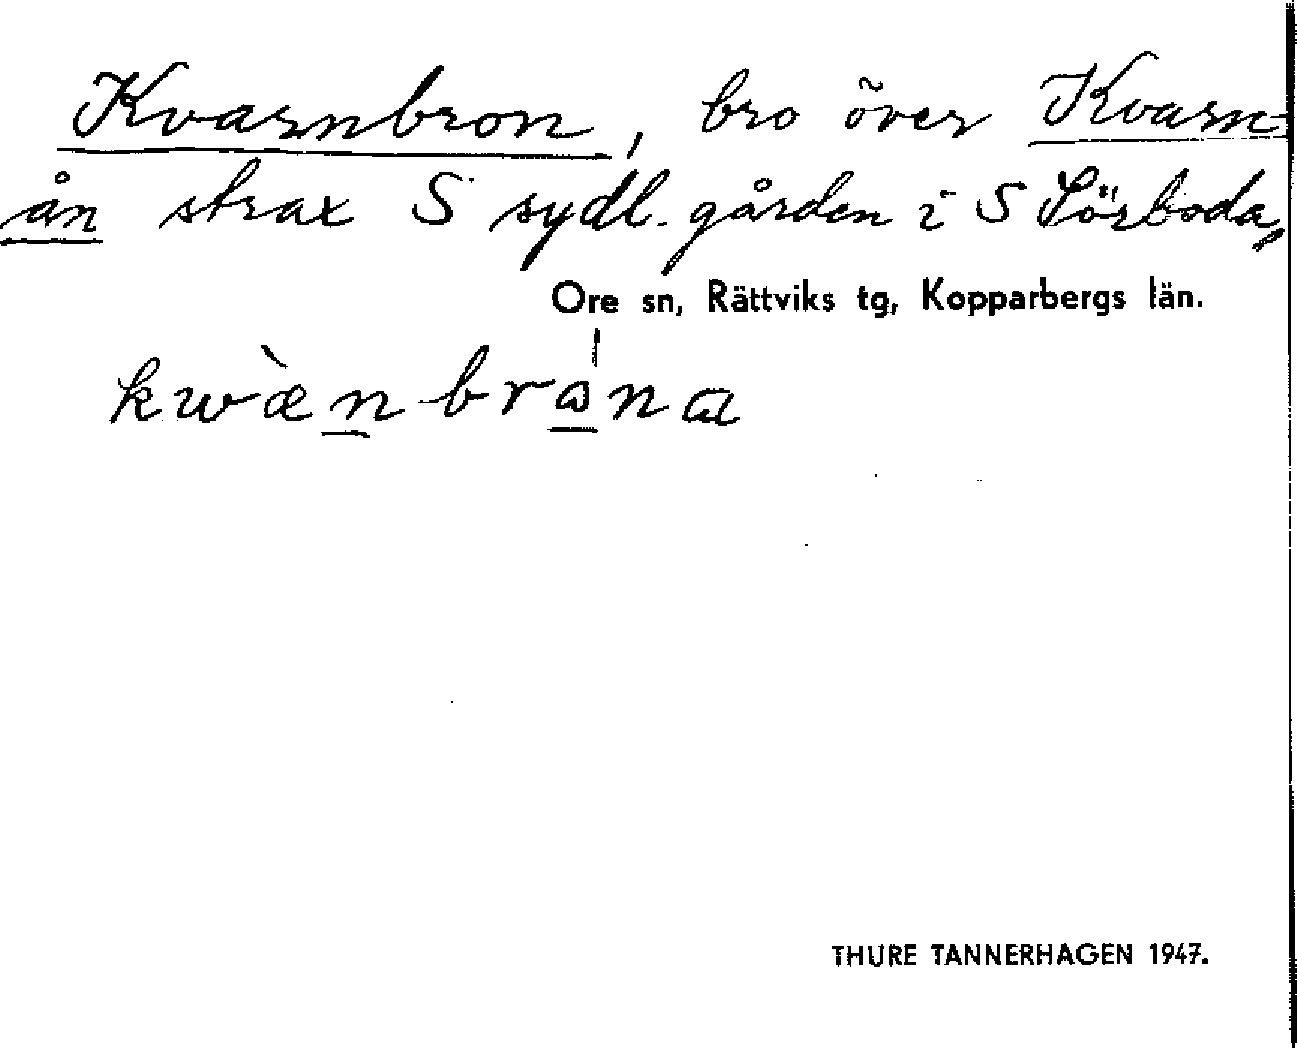 Kvarnbron, bro över Kvarn-
ån strax S sydl. gården i S Sörboda,
Ore sn, Rättviks tg, Kopparbergs län.
kwæ̀nbrɷna
THURE TANNERHAGEN 1947.